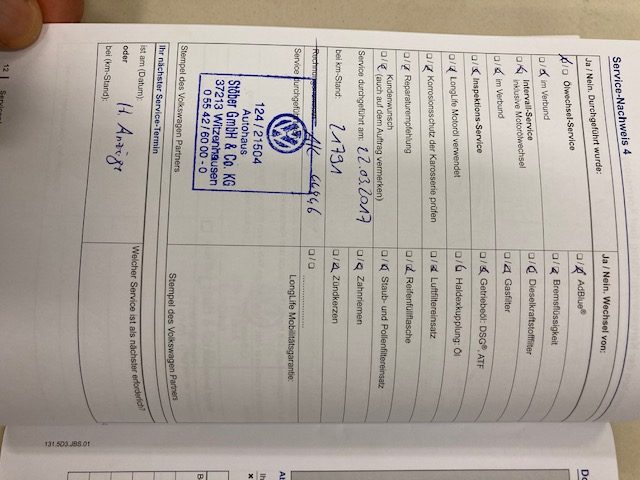 Service-Nachweis 4
Ja / Nein. Durchgeführt wurde:
Ölwechsel-Service
im Verbund
Intervall-Service
inklusive Motorölwechsel
im Verbund
Inspektions-Service
LongLife Motoröl verwendet
Korrosionsschutz der Karosserie prüfen
Reparaturempfehlung
Kundenwunsch
(auch auf dem Auftrag vermerken)
Service durchgeführt am: 22.03.2017
bei km-Stand: 21791
44446
Service durchgeführt
124 / 21504
Autohaus
Stöber GmbH & Co. KG
37213 Witzenhausen
0 55 42 / 60 00 - 0
Stempel des Volkswagen Partners
Ihr nächster Service-Termin
ist am (Datum):
oder lt. Anzeige
bei (km-Stand):
Ja / Nein. Wechsel von:
AdBlue®
Bremsflüssigkeit
Dieselkraftstofffilter
Gasfilter
Getriebeöl: DSG®, ATF
Haldexkupplung: Öl
Luftfiltereinsatz
Reifenfüllflasche
Staub- und Pollenfiltereinsatz
Zahnriemen
Zündkerzen
LongLife Mobilitätsgarantie:
Stempel des Volkswagen Partners
Welcher Service ist als nächster erforderlich?
12
131.5D3.JBS.01